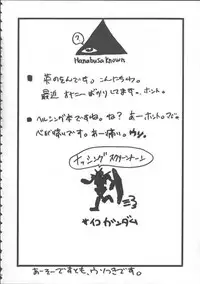 ?
Hanabusa Known
■ 英のをんです。こんにちわ。
最近 オナニーばかりしてます。ホント。
■ ヘルシング本ですね。ね? あーホント。マジ。
ペンが怖いです。あー怖い。ウソ。
ナッシング スクリーントーン
サイコ ガンダム
あーそーですとも、ウソつきです。